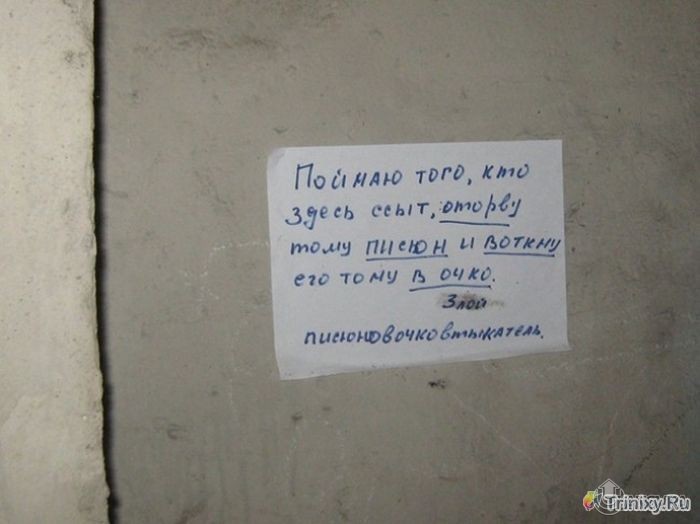 Поймаю того, кто
здесь ссыт, оторву
тому писюн и воткну
его тому в очко.
Злой
писюновочковтыкатель.
Trinixy.Ru